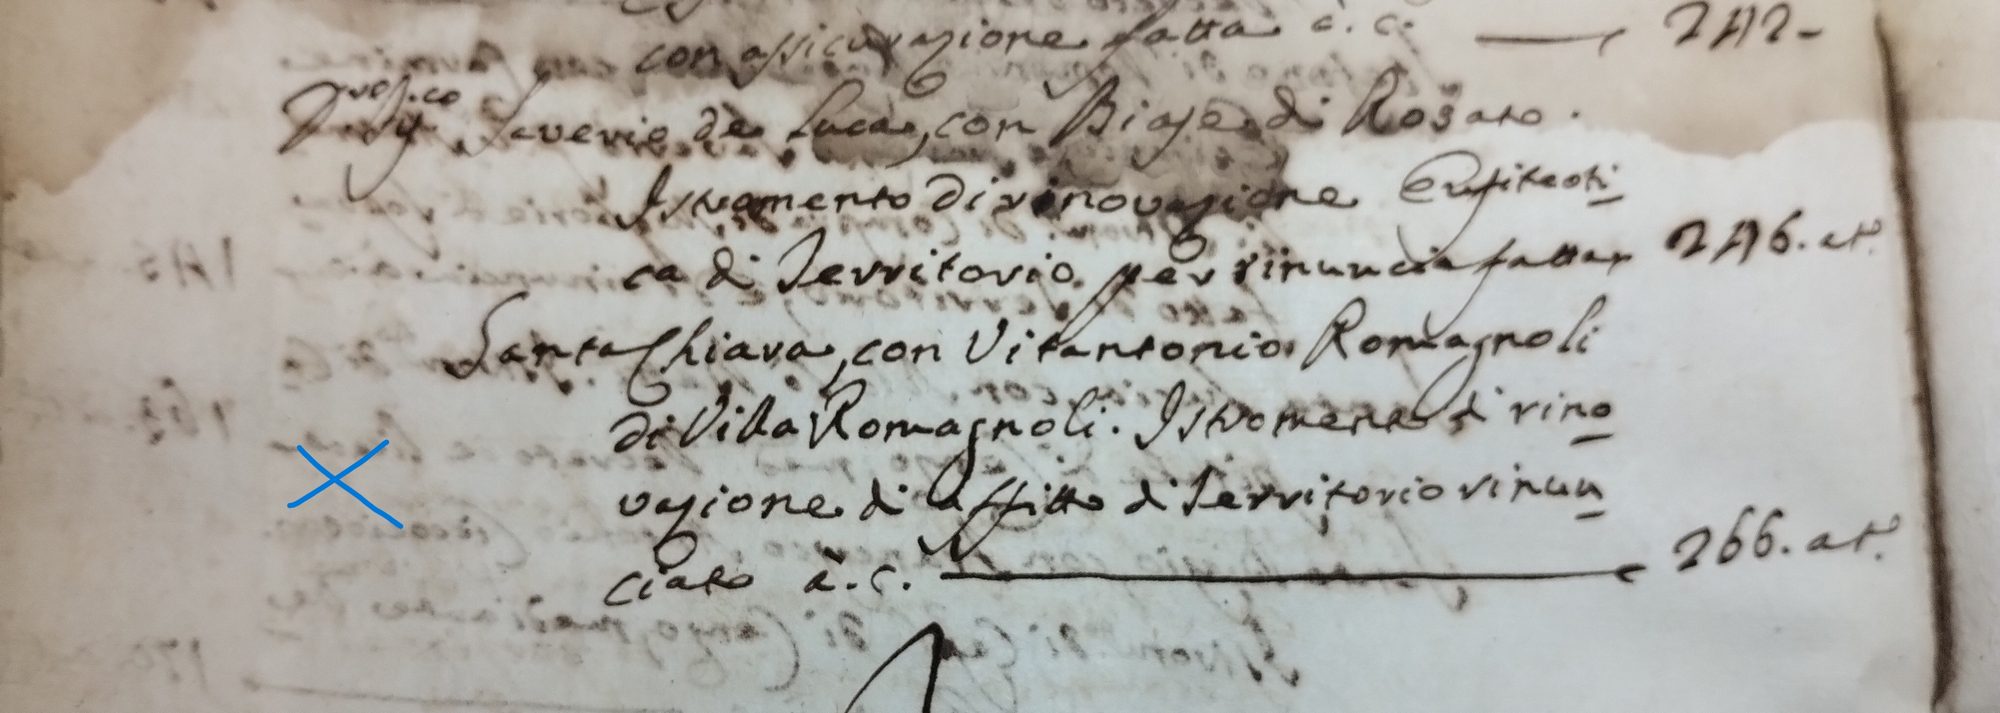 con assicurazione fatta à. c. 242-
Saverio de Luca, con Biase di Rosato.
Istromento di rinovazione Enfiteoti
ca di Territorio per rinuncia fatta 246. at.º
Santa Chiara, con Vitantonio Romagnoli
di Villa Romagnoli. Istromento di rino
vazione di affitto di Territorio rinun
ciato à. c. 266. at.º